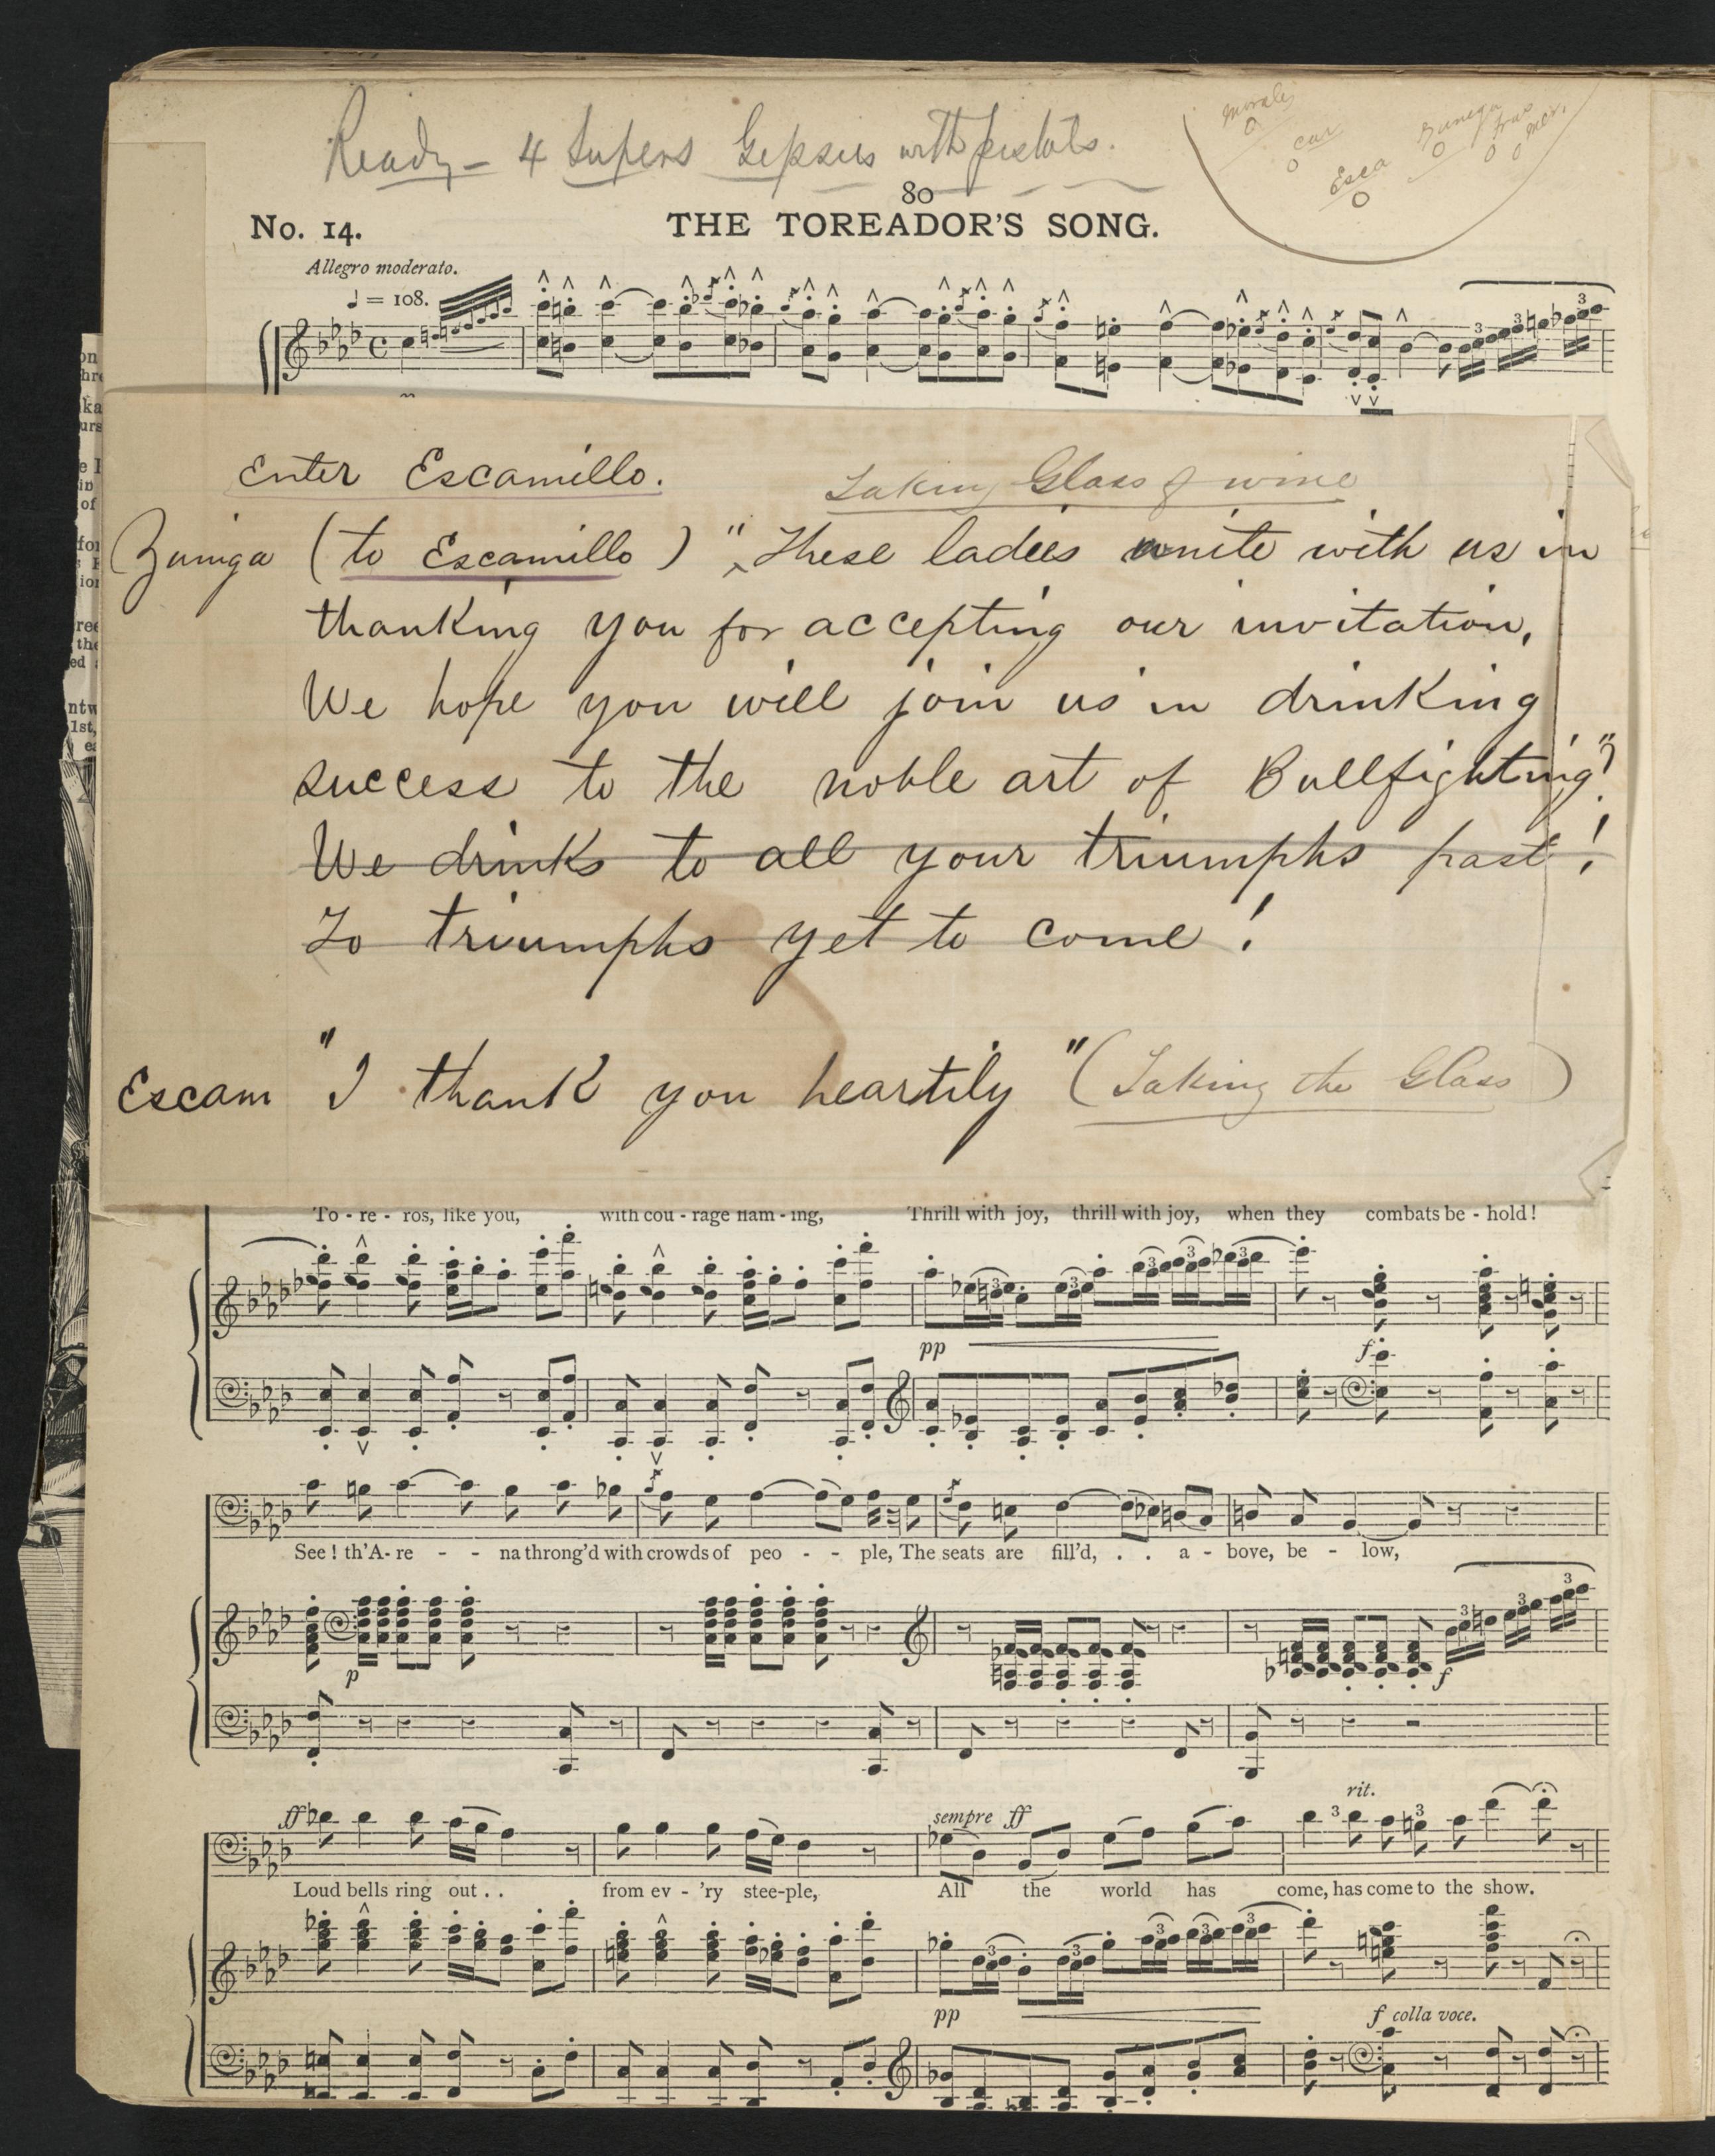 Ready – 4 Supers Gipsies with pistols.
Morales
Car
Esca
Zuniga
Fras
Mer.
80
No. 14. THE TOREADOR'S SONG.
Allegro moderato.
♩ = 108.
Enter Escamillo. Taking Glass of wine
Zuniga (to Escamillo) " These ladies unite with us in
thanking you for accepting our invitation,
We hope you will join us in drinking
success to the noble art of Bullfighting"
We drinks to all your triumphs past!
To triumphs yet to come!
Escam "I thank you heartily" (Taking the Glass)
To - re - ros, like you, with cou - rage flam - ing, Thrill with joy, thrill with joy, when they combats be - hold!
pp f
See! th'A- re - - na throng'd with crowds of peo - - ple, The seats are fill'd, . . a - bove, be - low,
p f
ff sempre ff rit.
Loud bells ring out . . from ev - 'ry stee-ple, All the world has come, has come to the show.
pp f colla voce.